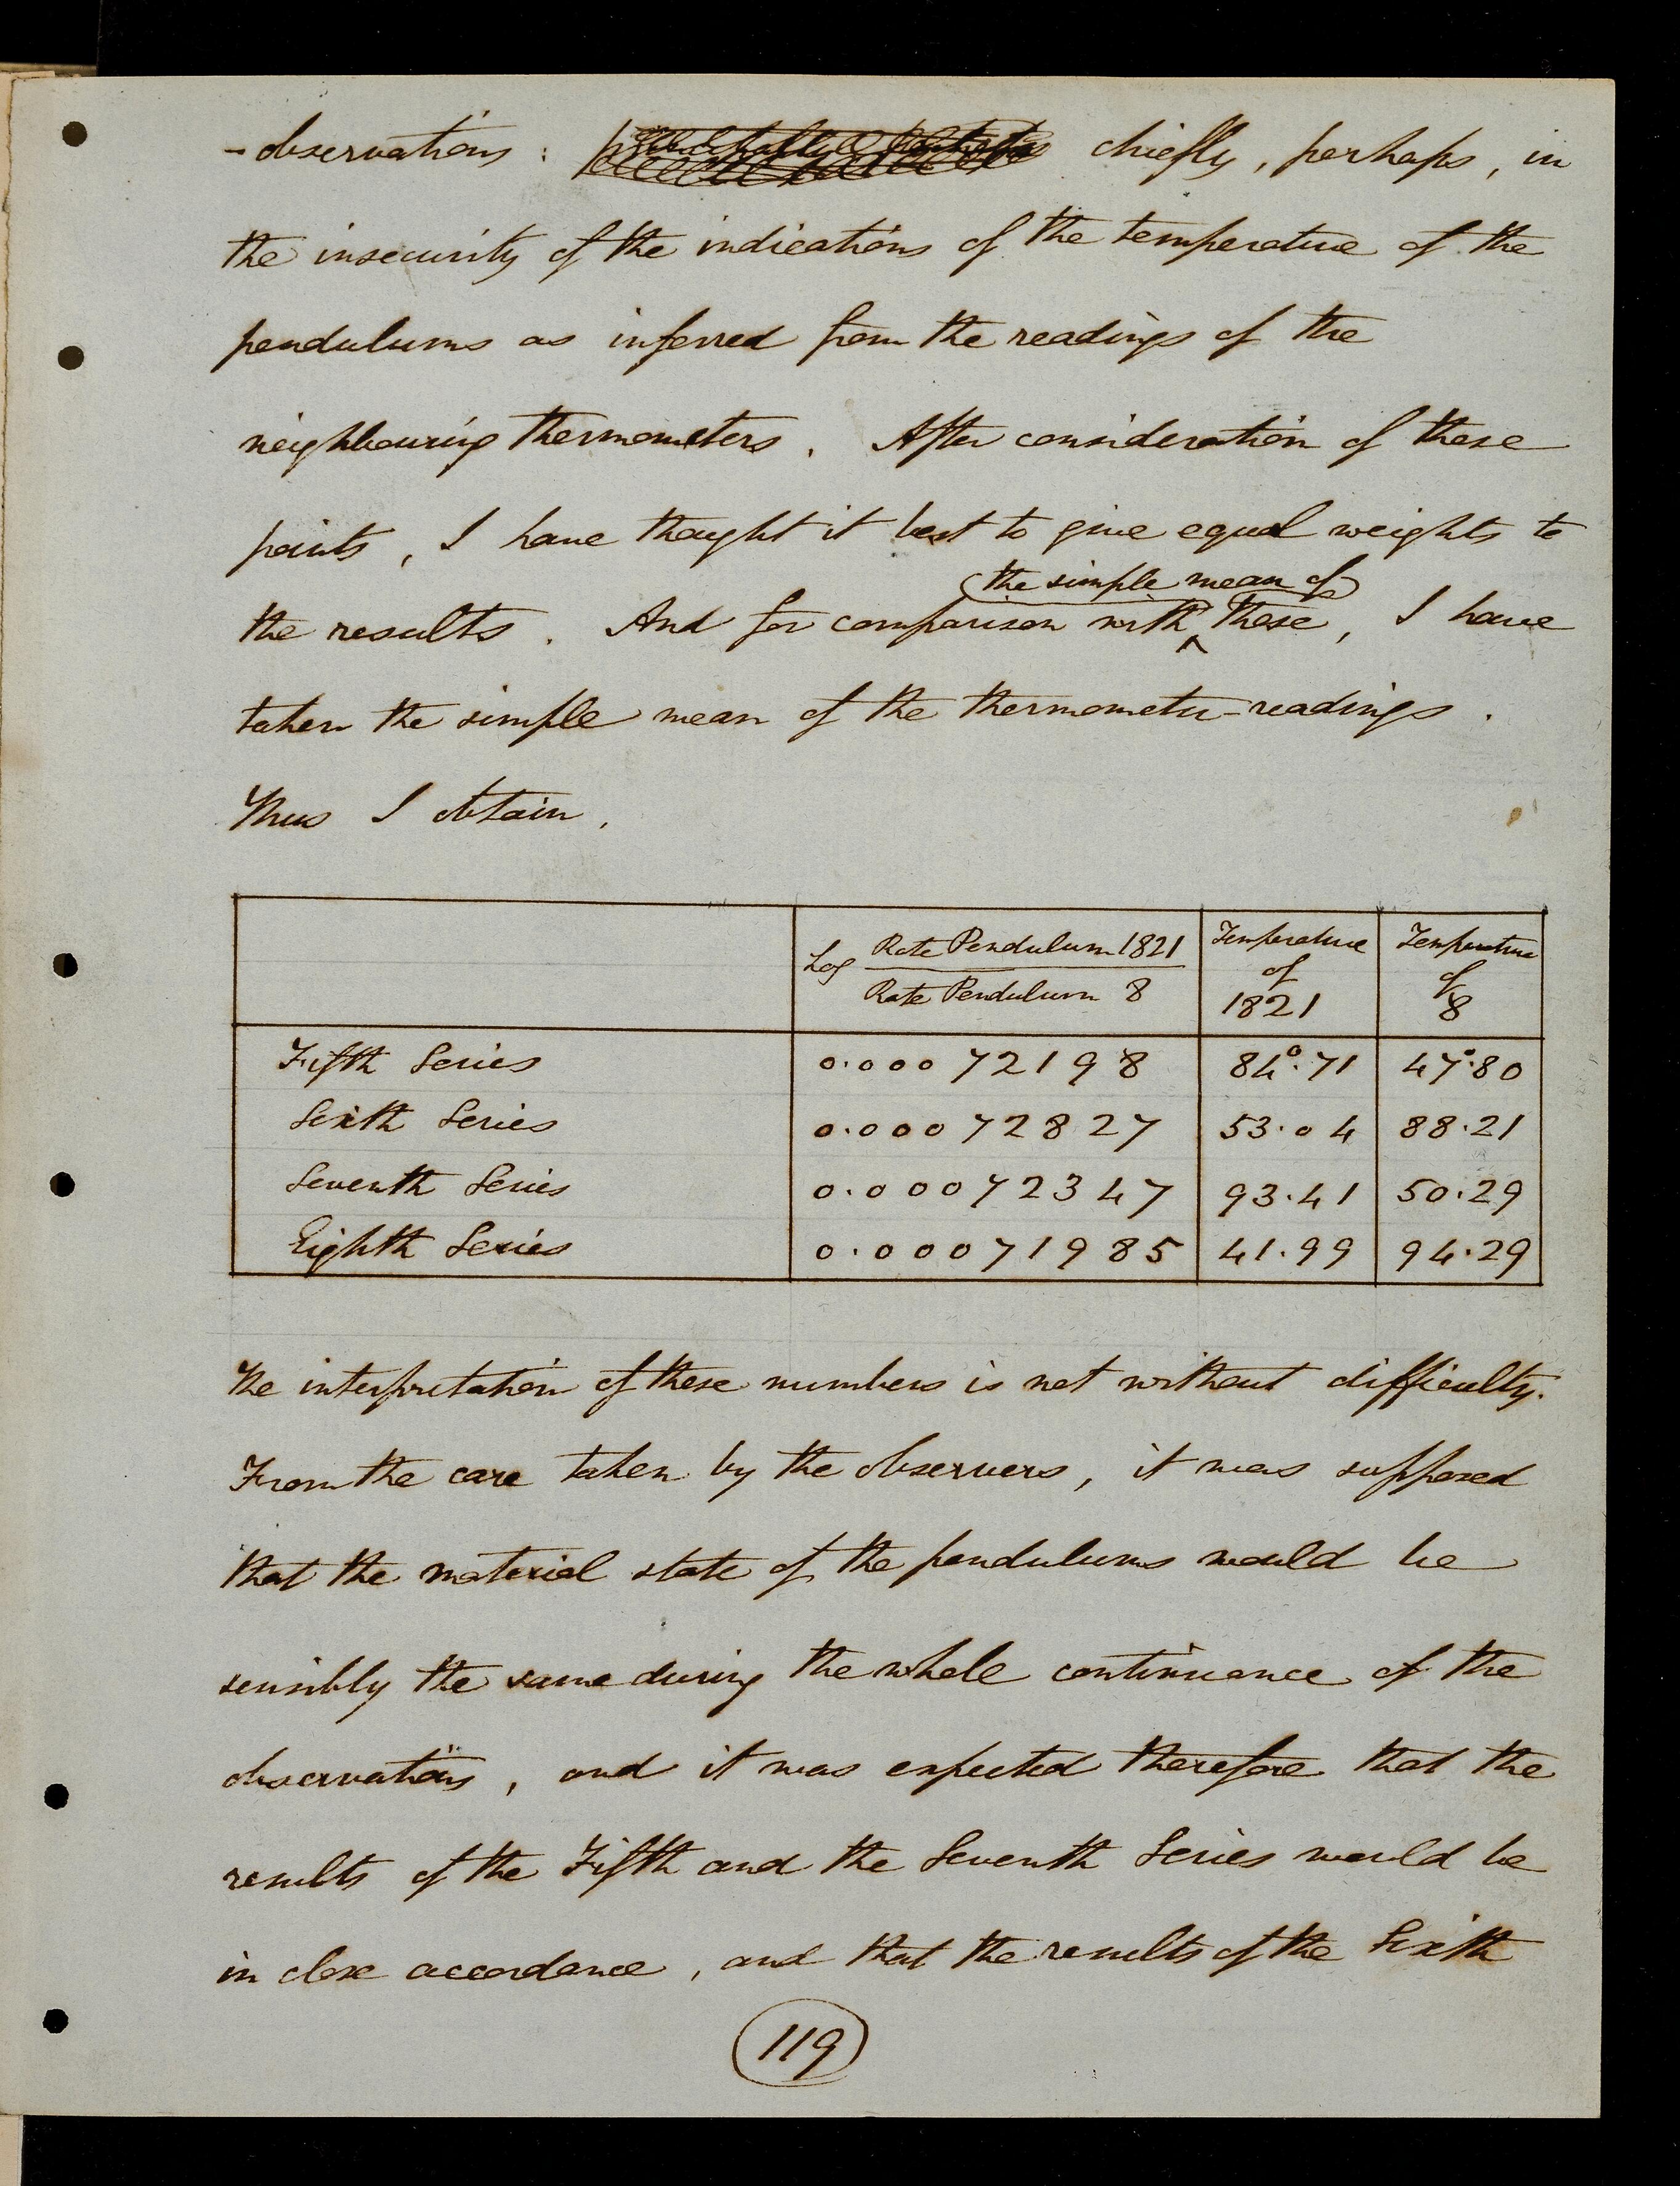 -observations : chiefly, perhaps, in
the insecurity of the indications of the temperature of the
pendulums as inferred from the readings of the
neighbouring thermometers. After consideration of these
points, I have thought it best to give equal weights to
the simple mean of
the results. And for comparison with ^ these, I have
taken the simple mean of the thermometer-readings.
Thus I obtain.
Log Rate Pendulum 1821 / Rate Pendulum 8 Temperature of 1821 Temperature of 8
Fifth Series 0.00072198 84°.71 47°.80
Sixth Series 0.00072827 53.04 88.21
Seventh Series 0.00072347 93.41 50.29
Eighth Series 0.00071985 41.99 94.29
The interpretation of these numbers is not without difficulty.
From the care taken by the observers, it was supposed
that the material state of the pendulums would be
sensibly the same during the whole continuance of the
observations, and it was expected therefore that the
results of the Fifth and the Seventh Series would be
in close accordance, and that the results of the Sixth
119